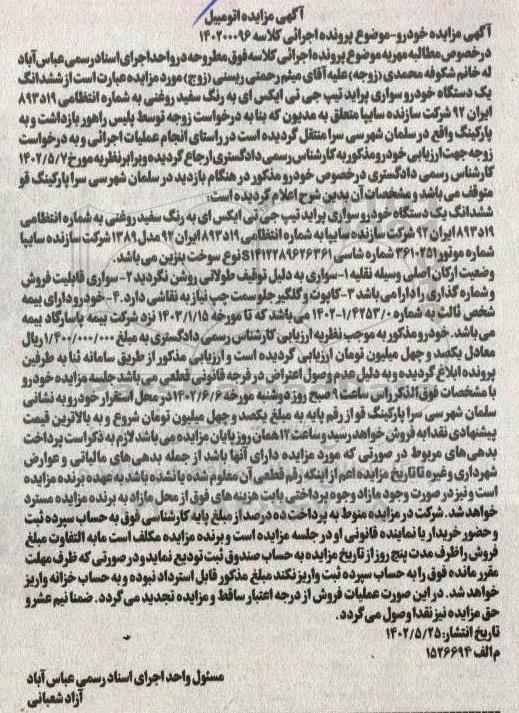 آگهی مزایده اتومبیل
آگهی مزایده خودرو-موضوع پرونده اجرائی کلاسه ۱۴۰۲۰۰۰۹۶
درخصوص مطالبه مهریه موضوع پرونده اجرائی کلاسه فوق مطروحه در واحد اجرای اسناد رسمی عباس آباد
له خانم شکوفه محمدی (زوجه) علیه آقای میثم رحمتی ریسنی (زوج) مورد مزایده عبارت است از ششدانگ
یک دستگاه خودرو سواری پراید تیپ جی تی ایکس ای به رنگ سفید روغنی به شماره انتظامی ۱۹د۸۹۳
ایران ۹۲ شرکت سازنده سایپا متعلق به مدیون که بنا به درخواست زوجه توسط پلیس راهور بازداشت و به
پارکینگ واقع در سلمان شهر سی سرا منتقل گردیده است در راستای انجام عملیات اجرائی و به درخواست
زوجه جهت ارزیابی خودرو مذکور به کارشناس رسمی دادگستری ارجاع گردیده و برابر نظریه مورخ ۱۴۰۲/۵/۷
کارشناس رسمی دادگستری درخصوص خودرو مذکور در هنگام بازدید در سلمان شهر سی سرا پارکینگ قو
متوقف می باشد و مشخصات آن بدین شرح اعلام گردیده است:
ششدانگ یک دستگاه خودرو سواری پراید تیپ جی تی ایکس ای به رنگ سفید روغنی به شماره انتظامی
۱۹د۸۹۳ ایران ۹۲ شرکت سازنده سایپا به شماره انتظامی ۱۹د۸۹۳ ایران ۹۲ مدل ۱۳۸۹ شرکت سازنده سایپا
شماره موتور ۳۶۱۰۲۵۱ شماره شاسی S۱۴۱۲۲۸۹۶۲۶۳۶۱ نوع سوخت بنزین می باشد.
وضعیت ارکان اصلی وسیله نقلیه ۱-سواری به دلیل توقیف طولانی روشن نگردید ۲-سواری قابلیت فروش
و شماره گذاری را دارا می باشد ۳-کاپوت و گلگیر جلو سمت چپ نیاز به نقاشی دارد. ۴-خودرو دارای بیمه
شخص ثالث به شماره ۱۴۰۲-۱/۴۲۵۳/۰ می باشد که تا مورخه ۱۴۰۳/۱/۱۵ نزد شرکت بیمه پاسارگاد بیمه
می باشد. خودرو مذکور به موجب نظریه ارزیابی کارشناس رسمی دادگستری به مبلغ ۱/۴۰۰/۰۰۰/۰۰۰ ریال
معادل یکصد و چهل میلیون تومان ارزیابی گردیده است و ارزیابی مذکور از طریق سامانه ثنا به طرفین
پرونده ابلاغ گردیده و به دلیل عدم وصول اعتراض در فرجه قانونی قطعی می باشد جلسه مزایده خودرو
با مشخصات فوق الذکر راس ساعت ۹ صبح روز دوشنبه مورخه ۱۴۰۲/۶/۶ در محل استقرار خودرو به نشانی
سلمان شهر سی سرا پارکینگ قو از رقم پایه به مبلغ یکصد و چهل میلیون تومان شروع و به بالاترین قیمت
پیشنهادی نقدا به فروش خواهد رسید و ساعت ۱۲ همان روز پایان مزایده می باشد لازم به ذکر است پرداخت
بدهی های مربوط در صورتی که مورد مزایده دارای آنها باشد از جمله بدهی های مالیاتی و عوارض
شهرداری و غیره تا تاریخ مزایده اعم از اینکه رقم قطعی آن معلوم شده یا نشده باشد به عهده برنده مزایده
است و نیز در صورت وجود مازاد وجوه پرداختی بابت هزینه های فوق از محل مازاد به برنده مزایده مسترد
خواهد شد. شرکت در مزایده منوط به پرداخت ده درصد از مبلغ پایه کارشناسی فوق به حساب سپرده ثبت
و حضور خریدار یا نماینده قانونی او در جلسه مزایده است و برنده مزایده مکلف است مابه التفاوت مبلغ
فروش را ظرف مدت پنج روز از تاریخ مزایده به حساب صندوق ثبت تودیع نماید و در صورتی که ظرف مهلت
مقرر مانده فوق را به حساب سپرده ثبت واریز نکند مبلغ مذکور قابل استرداد نبوده و به حساب خزانه واریز
خواهد شد. در این صورت عملیات فروش از درجه اعتبار ساقط و مزایده تجدید می گردد. ضمنا نیم عشر و
حق مزایده نیز نقدا وصول می گردد.
تاریخ انتشار: ۱۴۰۲/۵/۲۵
م الف ۱۵۲۶۶۹۴
مسئول واحد اجرای اسناد رسمی عباس آباد
آزاد شعبانی